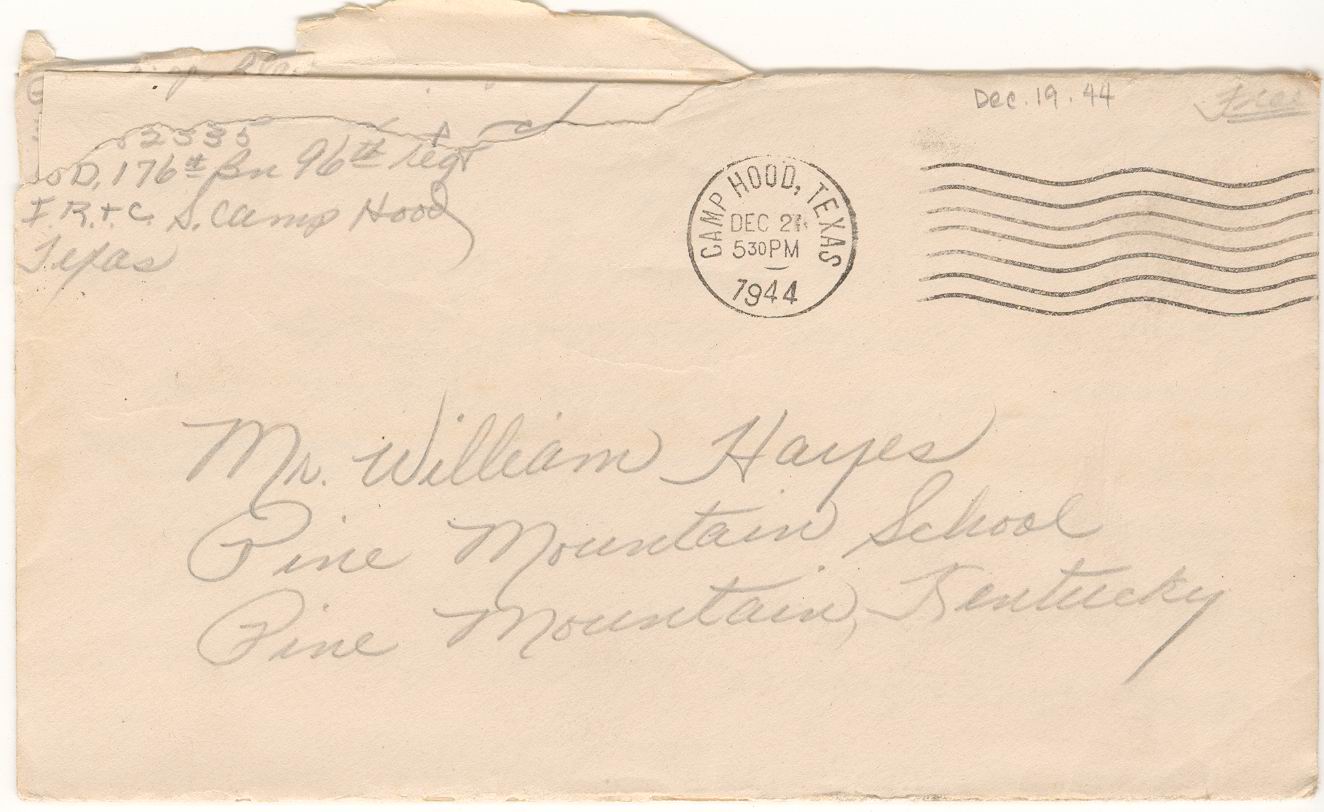 Dec. 19. 44
Free
52535
Co D. 176th Bn 96th regt
I.R.T.C. S. Camp Hood
Texas
CAMP HOOD, TEXAS
DEC 21
530PM
1944
Mr. William Hayes
Pine Mountain School
Pine Mountain, Kentucky